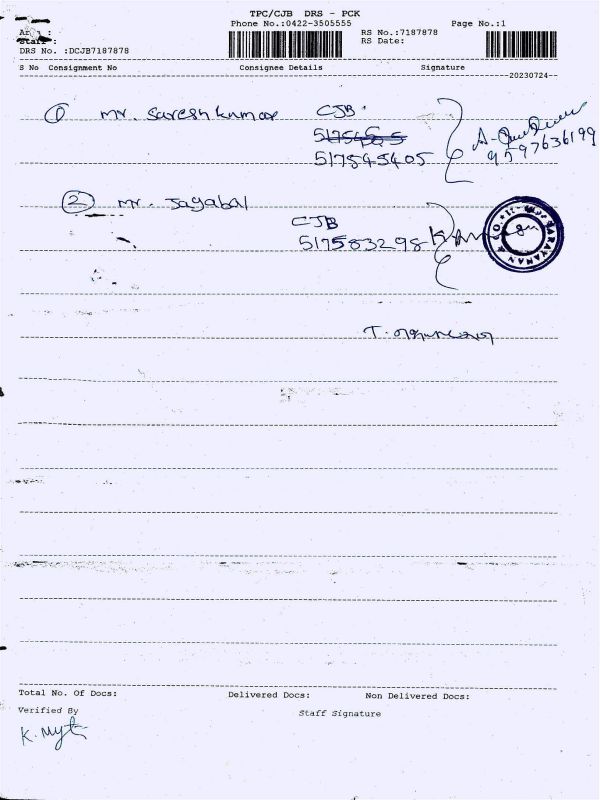 TPC/CJB DRS - PCK
Phone No.:0422-3505555
Page No.:1
RS No.:7187878
RS Date:
Staff :
DRS No. :DCJB7187878
S No Consignment No Consignee Details Signature
20230724
1 Mr. Sureshkumar CJB
517545405
9597636199
2 Mr. Jayabal
CJB
517583298
Total No. Of Docs: Delivered Docs: Non Delivered Docs:
Verified By Staff Signature